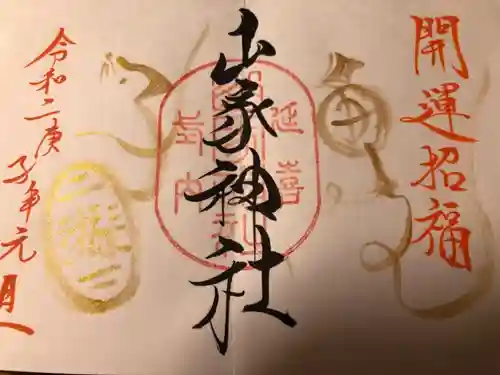 開運招福
延喜
山家神社
式内
令和二庚子年元旦